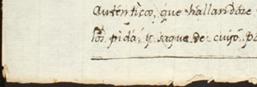 autenticos, que hallandose
los pida, y saque de cuyo po